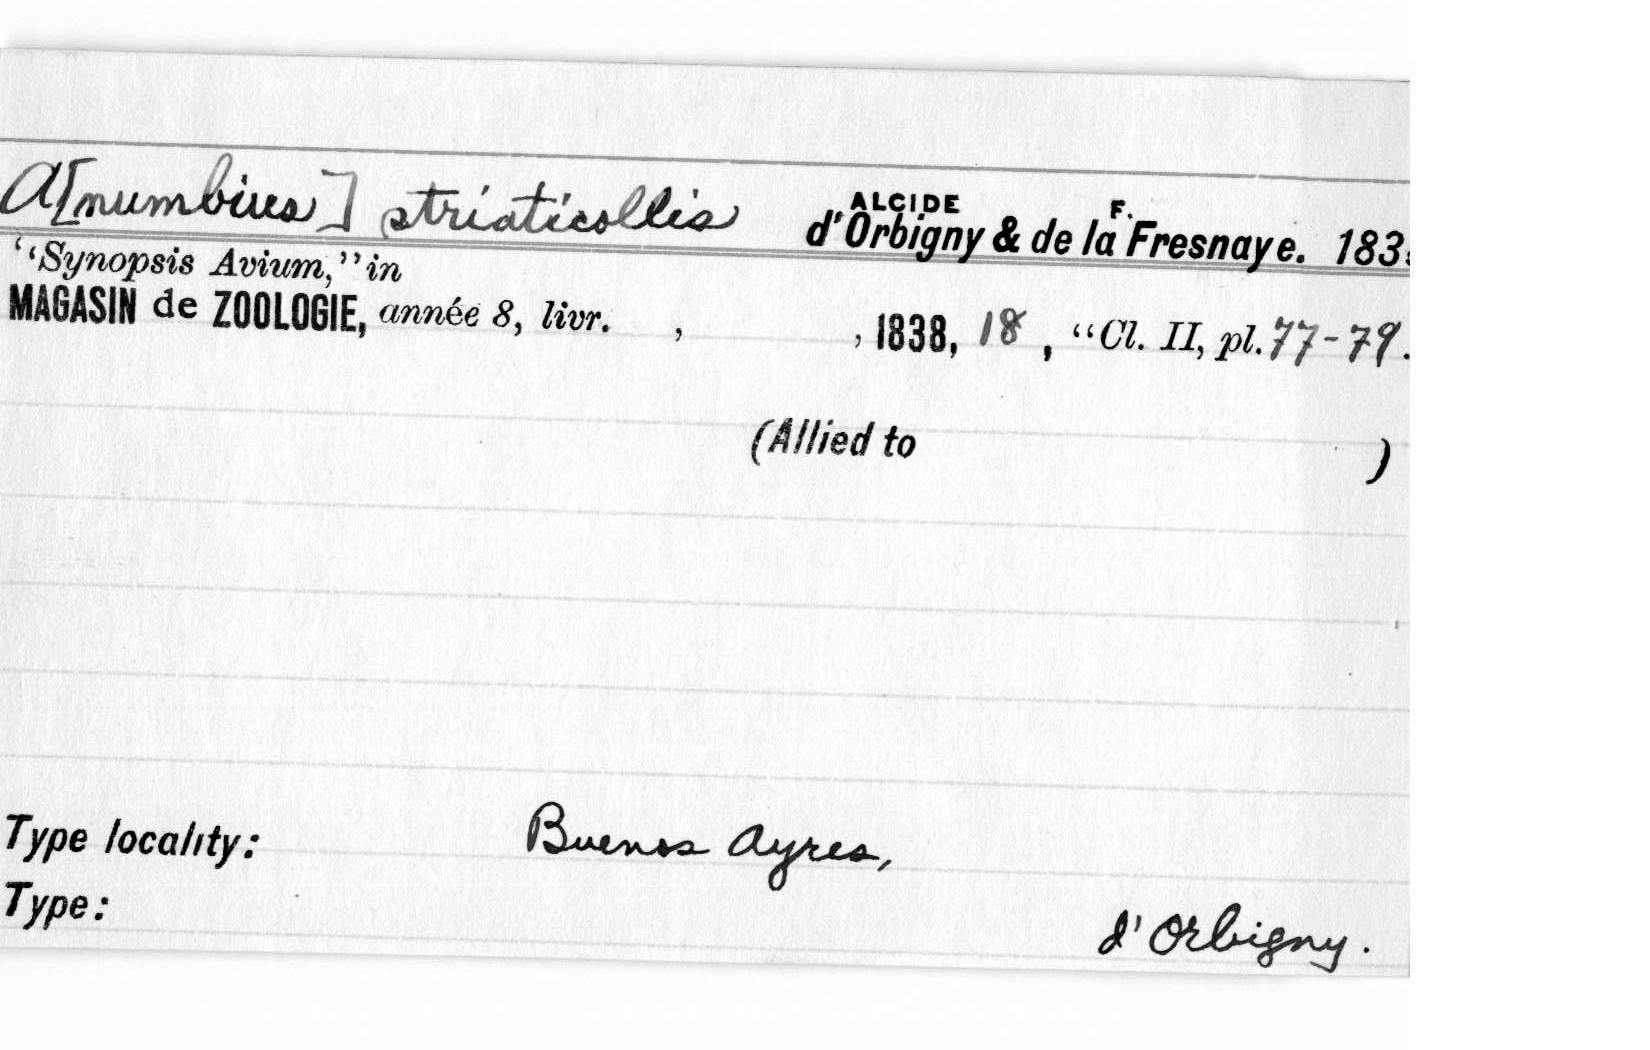 A[numbius] striaticollis ALCIDE d'Orbigny & F. de la Fresnaye. 183
"Synopsis Avium," in
MAGASIN de ZOOLOGIE, année 8, livr. , , 1838, 18, "Cl. II, pl. 77-79.
(Allied to )
Type locality: Buenos Ayres,
Type: d'Orbigny.